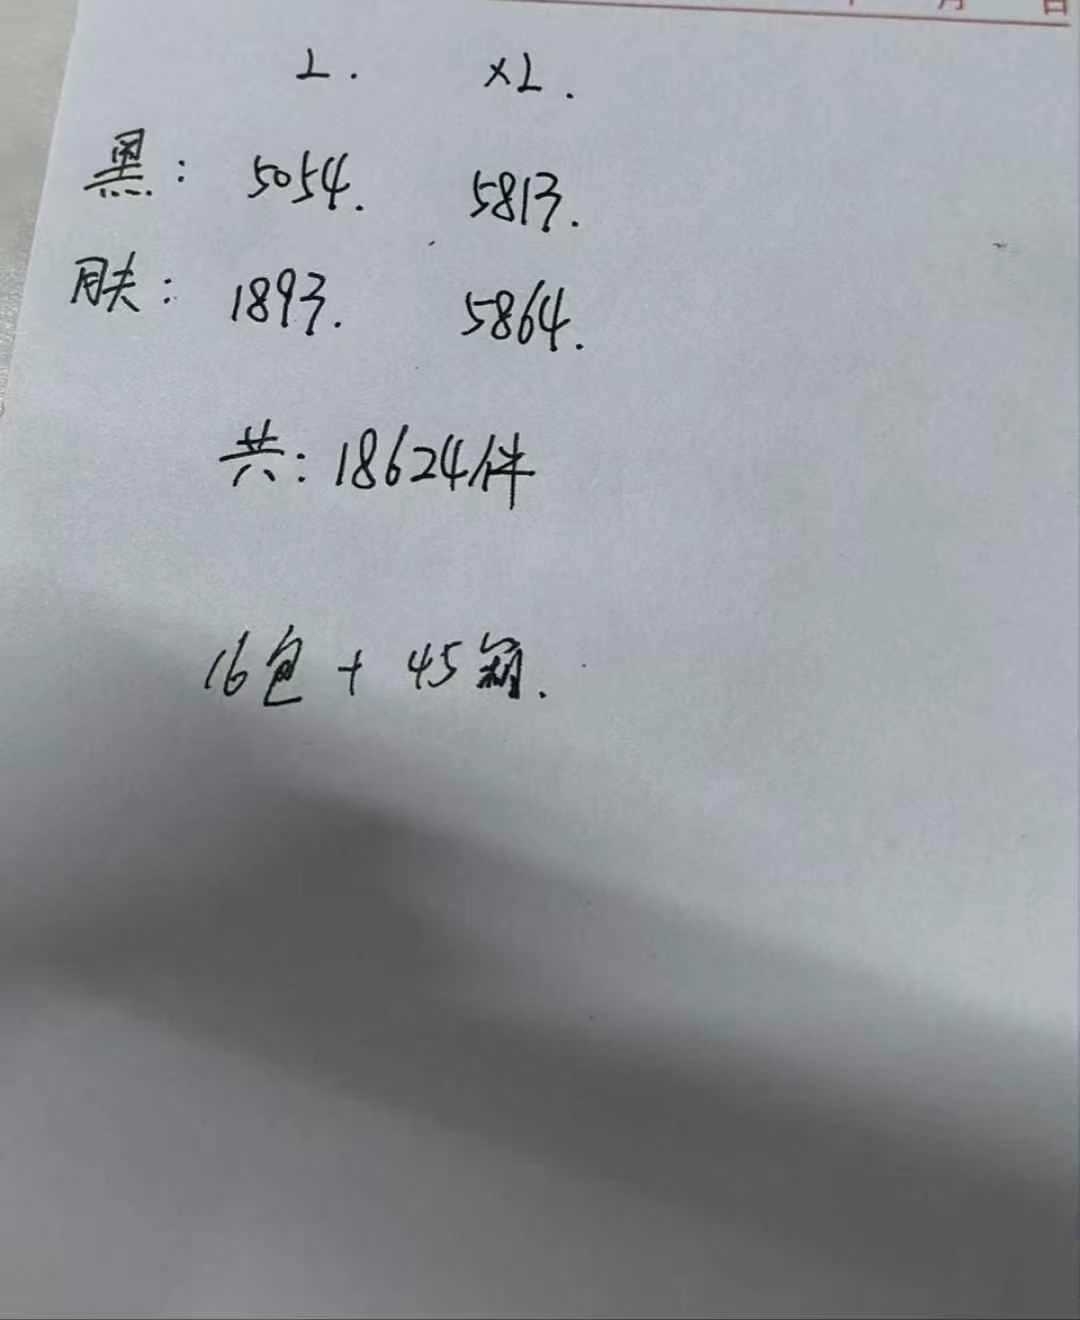 月 日
L. XL.
黑: 5054. 5813.
肤: 1893. 5864.
共: 18624件
16包 + 45箱.